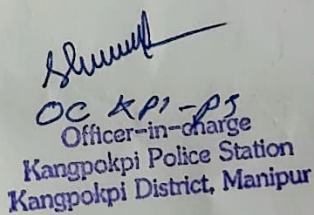 OC KPI-PS
Officer-in-charge
Kangpokpi Police Station
Kangpokpi District, Manipur